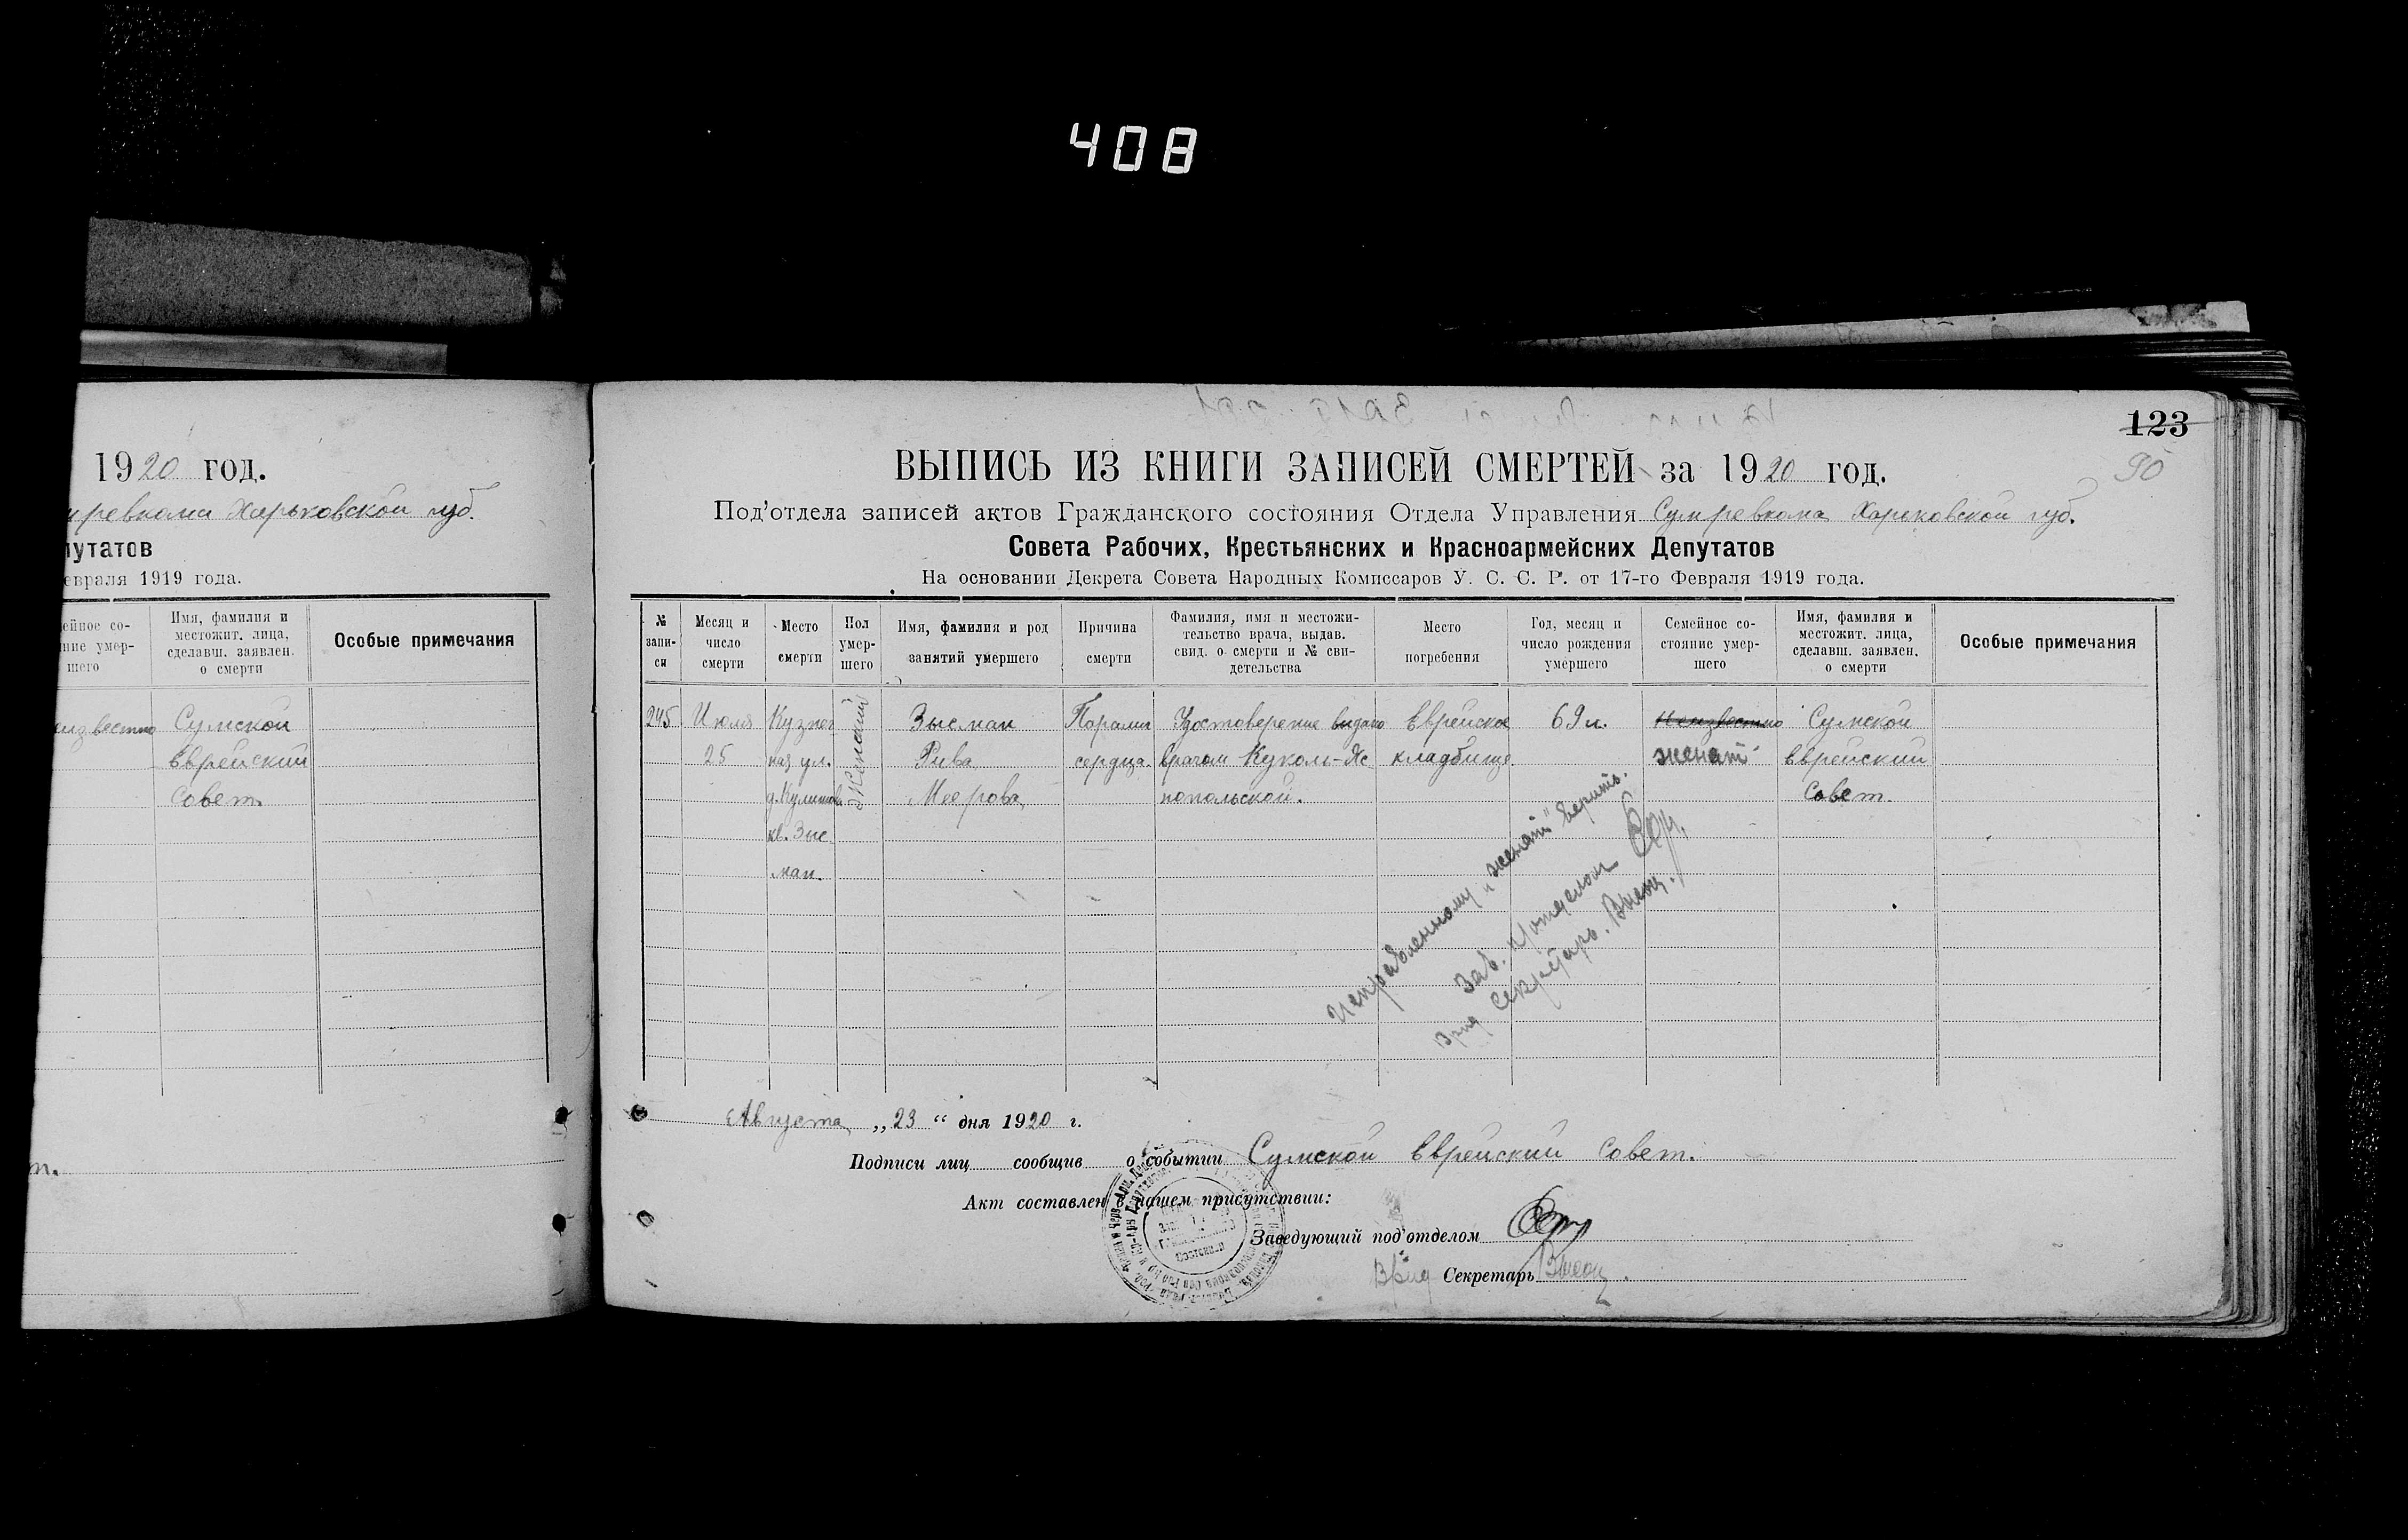 408
1920 год.
Харьковской губ.
путатов
евраля 1919 года.
ейное со-
ние умер-
шего
Имя, фамилия и
местожит. лица,
сделавш. заявлен.
о смерти
Особые примечания
известно
Сумской
Еврейский
Совет.
123
90
ВЫПИСЬ ИЗ КНИГИ ЗАПИСЕЙ СМЕРТЕЙ за 1920 год.
Под'отдела записей актов Гражданского состояния Отдела Управления Сумревкома Харьковской губ.
Совета Рабочих, Крестьянских и Красноармейских Депутатов
На основании Декрета Совета Народных Комиссаров У. С. С. Р. от 17-го Февраля 1919 года.
№
запи-
си
Месяц и
число
смерти
Место
смерти
Пол
умер-
шего
Имя, фамилия и род
занятий умершего
Причина
смерти
Фамилия, имя и местожи-
тельство врача, выдав.
свид. о смерти и № сви-
детельства
Место
погребения
Год, месяц и
число рождения
умершего
Семейное со-
стояние умер-
шего
Имя, фамилия и
местожит. лица,
сделавш. заявлен.
о смерти
Особые примечания
245
Июля
25
Кузнеч
ная ул.
кв. Зыс
ман.
Женский
Зысман
Рива
Меерова
Паралич
сердца.
Удостоверение видано
врачом Куколь-Яс
нопольской.
Еврейское
кладбище.
69 л.
Неизвестно
женат
Сумской
Еврейский
Совет.
Исправленному „женат" верить.
Зав. п/отделом
Врид Секретарь.
Августа „23" дня 1920 г.
Подписи лиц сообщив о событии Сумской Еврейский Совет.
Акт составлен в нашем присутствии:
Заведующий под'отделом
Врид Секретарь